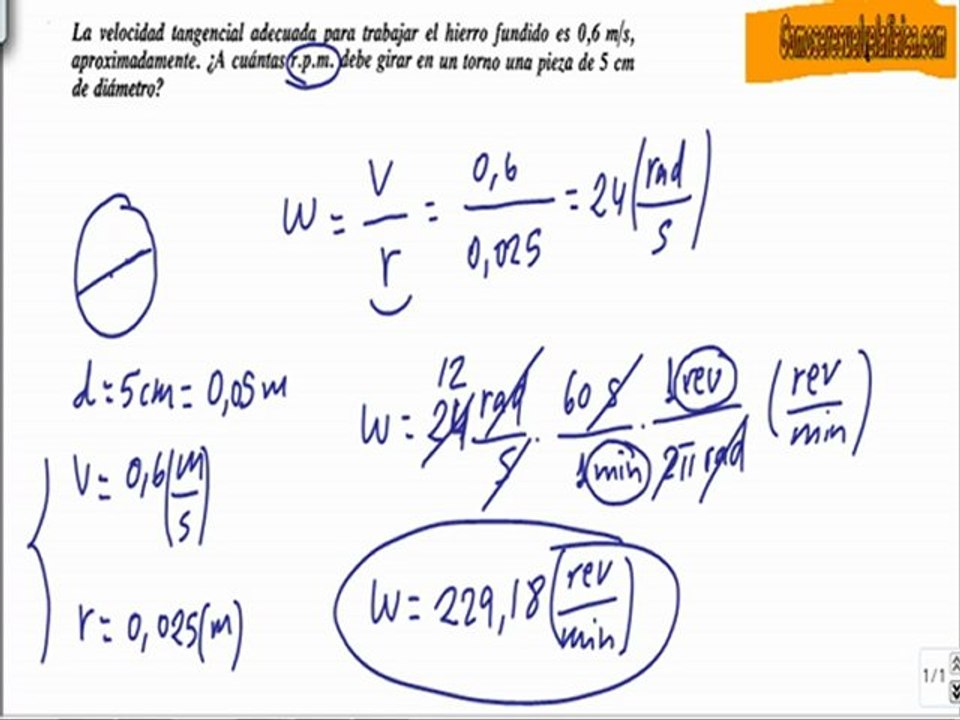 La velocidad tangencial adecuada para trabajar el hierro fundido es 0,6 m/s,
aproximadamente. ¿A cuántas r.p.m. debe girar en un torno una pieza de 5 cm
de diámetro?
Comoseresuelvelafisica.com
W = V/r = 0,6/0,025 = 24 (rad/s)
d = 5cm = 0,05m
12
W = 24 rad/s · 60 s/1 min · 1 rev/2π rad (rev/min)
V = 0,6 (m/s)
W = 229,18 (rev/min)
r = 0,025 (m)
1/1